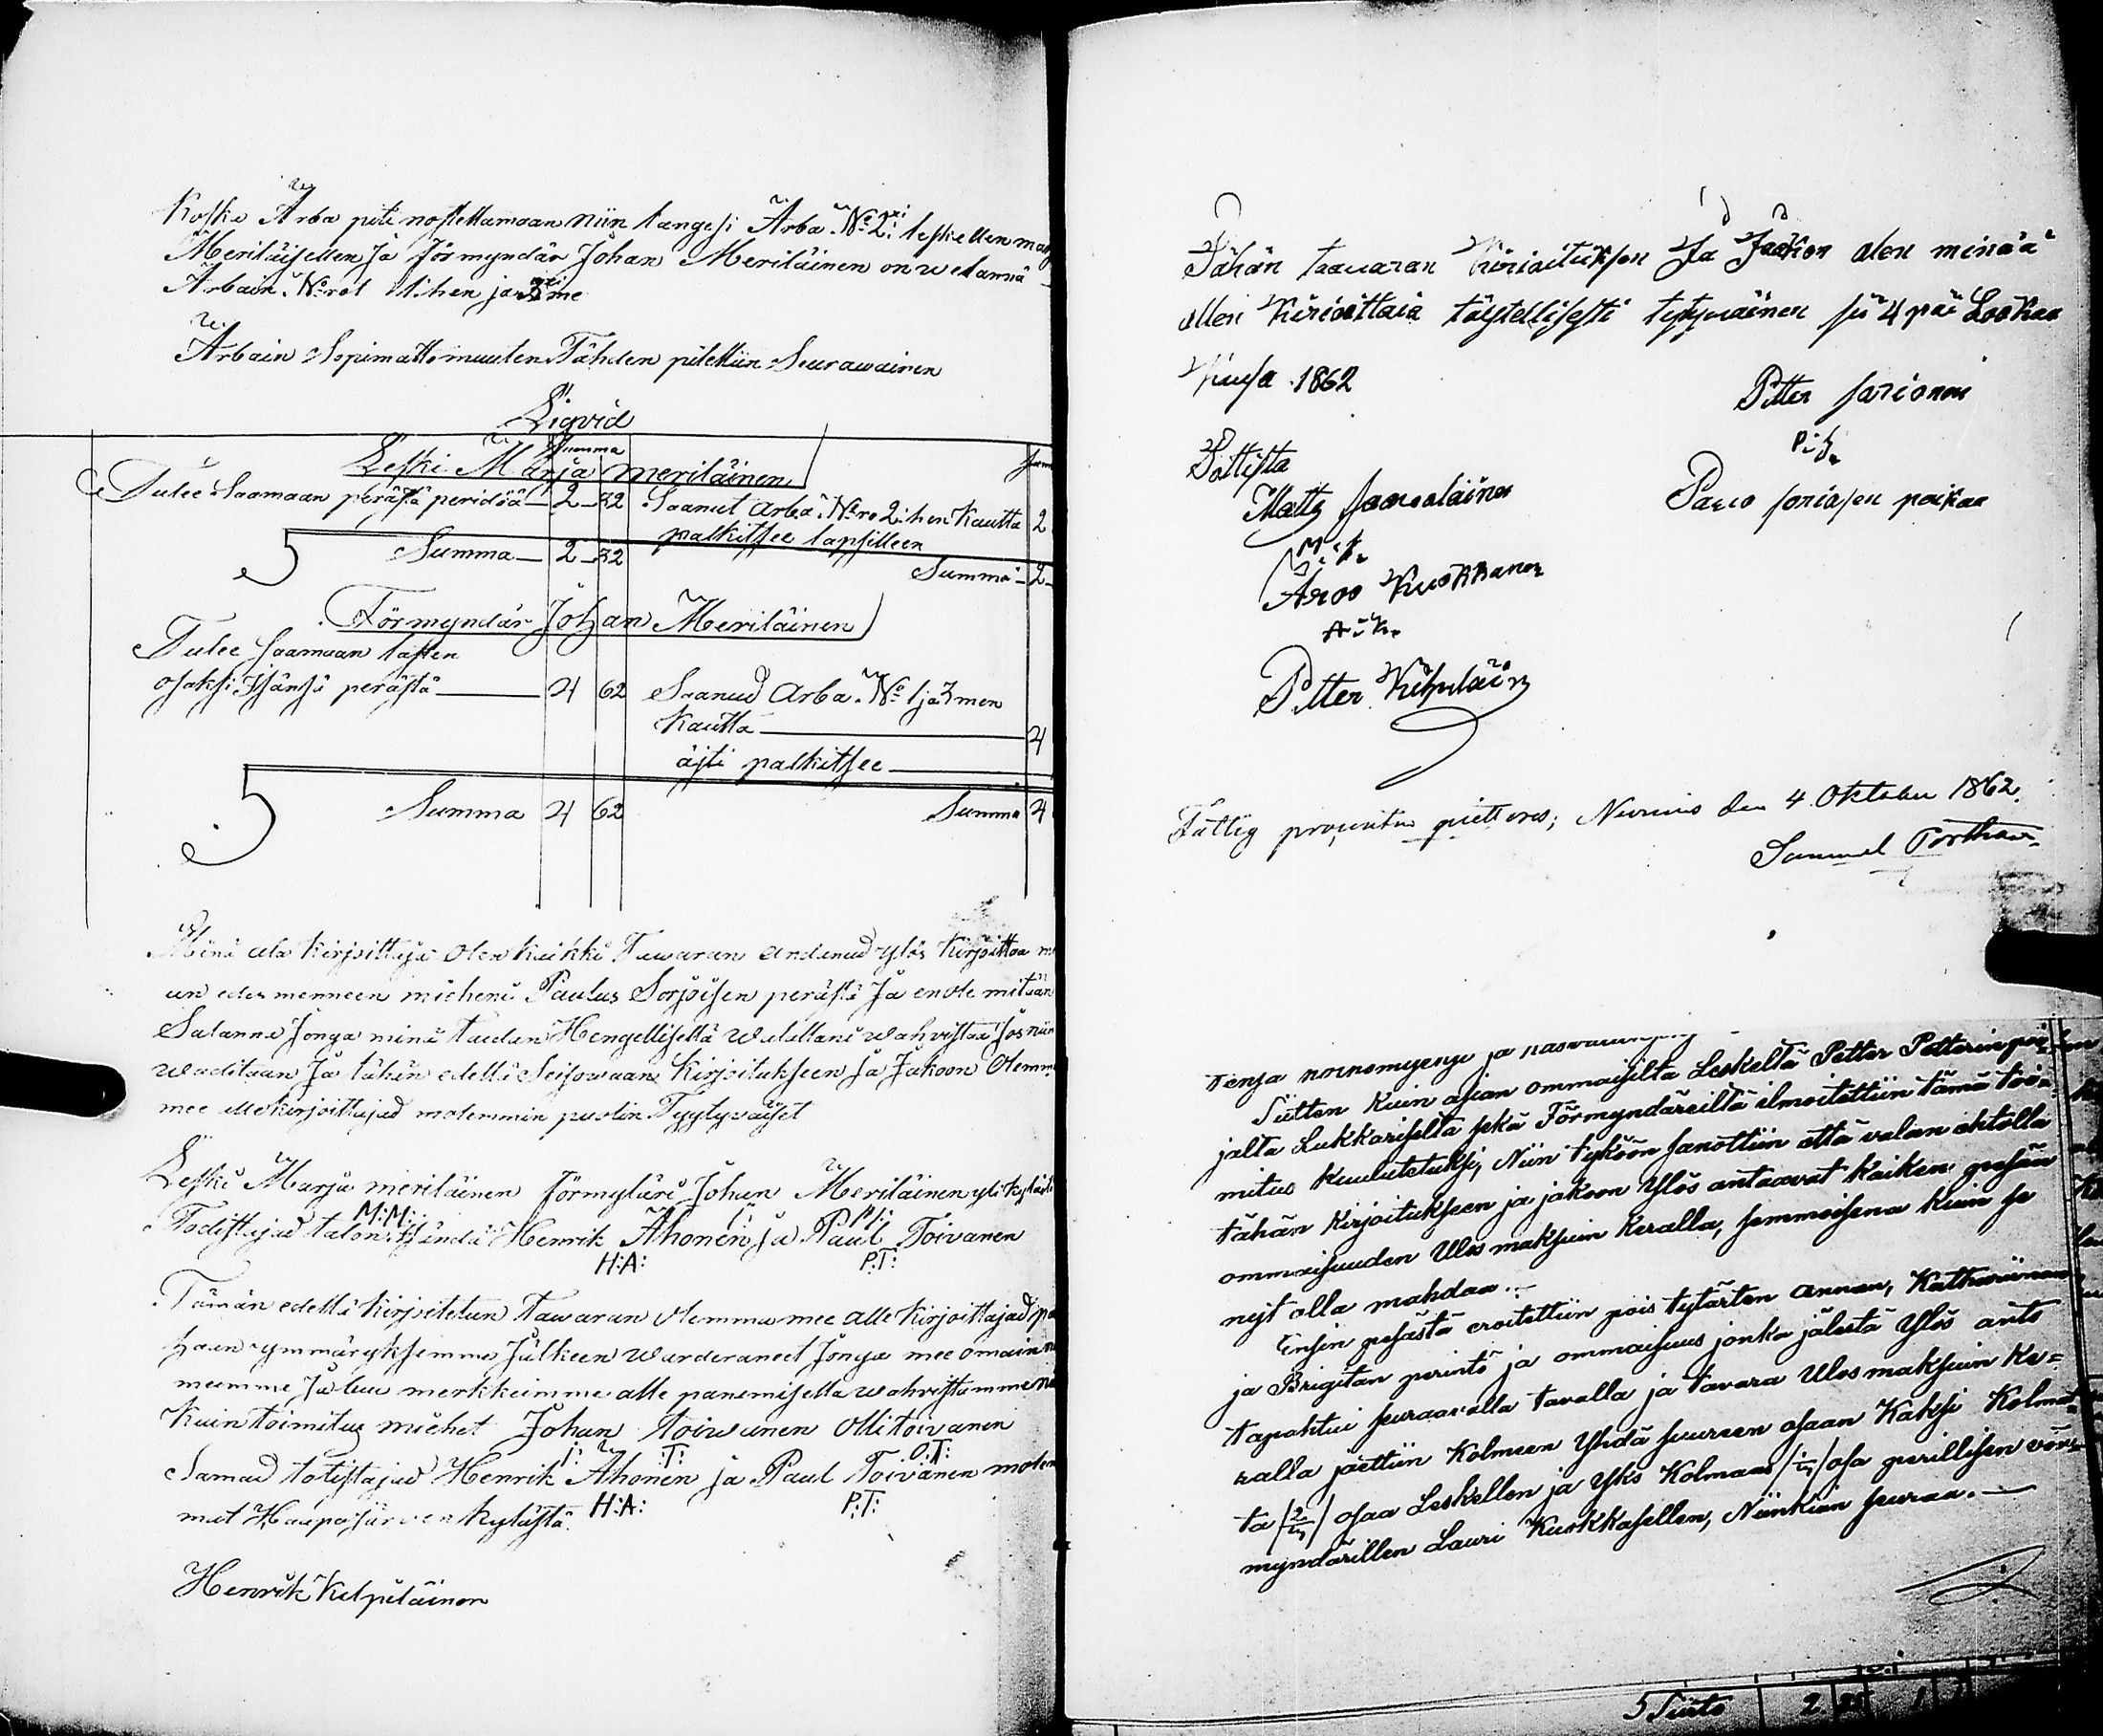 Koska Arba piti nostettamaan niin langesi Arba. No 2:xi leskellen
Meriläisellen Ja förmyndär Johan Meriläinen on wetännä
Arbain. No rot 1:hen ja 3:me
Arbain Sopimattomuuten Tähden pitettiin Seurawainen
Liqvid
Summa
Leski Marja meriläinen
Tulee Saamaan perästä peridöä — 2 — 32 Saanut Arba. No ro 2:hen Kautta 2
palkitsee lapsilleen
Summa — 2 — 32 Summa — 2
Förmyndär Johan Meriläinen
Tulee Saamaan lasten
osaksi Isänsä perästä — 4 62 Saanud Arba. No 1 ja 3men
Kautta — 4
äiti palkitsee —
Summa 4 62 Summa 4
Minä ala kirjoittaja olen kaikki Tawaran andanud ylös kirjoittaa
un edes menneen mieheni Paulus Sorjoisen perästä Ja en ole mitään
Salanna Jonga minä taidan Hengellisellä walallani wahvistaa Jos niin
waaditaan Ja tähän edellä Seisowaan kirjoitukseen Ja Jakoon Olemma
mee allekirjoittajad molemmin puolin Tyytywäiset
Leski Marja meriläinen förmyläri Johan Meriläinen yli kylästä
M:M: I: M:
Todistajad talon Isändä Henrik Ahonen Ja Paul Toivanen
H:A: P:T:
Tämän edellä kirjoitetun tawaran olemma mee alle kirjoittajad
haan ymmäryksemme Jälkeen warderaneet Jonga mee omain
meemme Ja luu merkkeimme alle panemisella wahvistamme
Kuin toimitus miehet Johan toiwanen Olli toivanen
I: T: O:T:
Samad totistajad Henrik Ahonen ja Paul Toivanen molem
mat Haapajärwen kylästä H:A: P:T:
Henrik Kilpiläinen
Tähän tawaran Kirioituksen Ja Jaakon olen minää
allen Kirioittaia täytellisesti tytywäinen se 4 päi Lookaa
Kuusa 1862
Petter sorionen
P:S:
Tottista
Matts
Paawo soriosen poikaa
Aroo Kuokkanen
A:K:
Petter Kilpiläin
Fattig procenten quitteras; Nurmis den 4 Oktober 1862.
Samuel Porthan
Sitten Kuin asian ommaisilta Leskeltä Petter Petterin poi-
jalta Lukkariselta sekä Förmyndäreiltä ilmoitettiin tämä toi-
mitus Kuulutetuksi, Niin tyköön sanottiin että valan ehtolla
tähän Kirjoitukseen ja jakoon Ylös antaavat Kaiken pesän
ommaisuuden Ulos maksuin keralla, semmoisena kuin se
nyt olla mahdaa. —
Ensin pesästä eroitettiin pois tytärten Annan, Katharinan
ja Brigitan perintö ja ommaisuus jonka jälestä Ylös anto
tapahtui seuraavalla tavalla ja tavara Ulos maksuin ke=
ralla jaettiin Kolmeen Yhdä suureen osaan Kaksi Kolmat-
ta (2/3) osaa Leskellen ja Yks Kolmaas (1/3) osa perillisen vör-
myndärillen Lauri Kuokkasellen, Niinkuin seuraa. —
5 Siirto 2